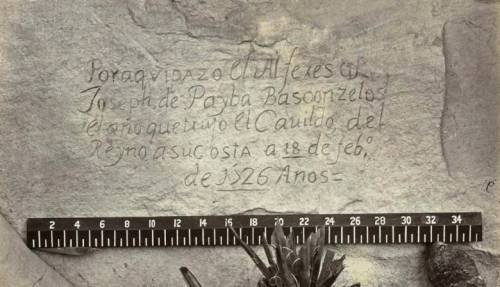 Por aqvi pazo el Alferes Dn
Joseph de Payba Basconzelos
el año que trujo el Cauildo del
Reyno a su costa a 18 de feb.o
de 1526 Años =
2 4 6 8 10 12 14 16 18 20 22 24 26 28 30 32 34